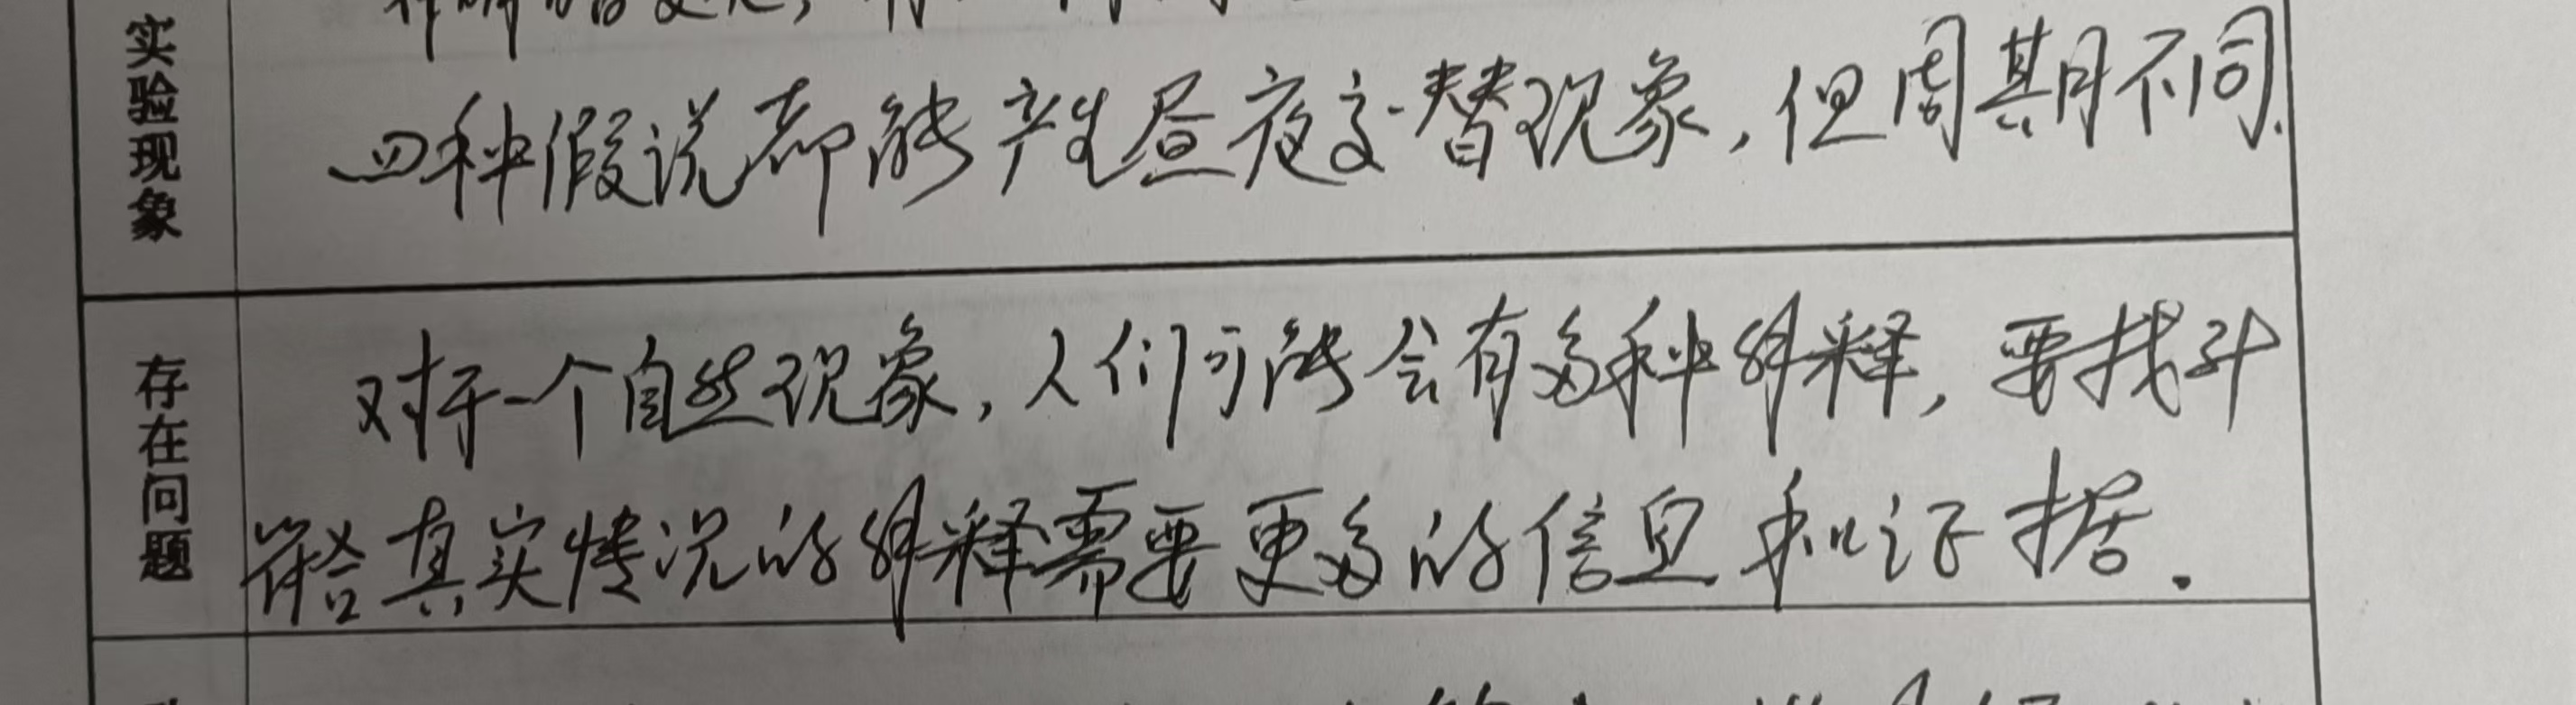 实验现象
四种假说都能产生昼夜交替现象，但周期不同.
存在问题
对于一个自然现象，人们可能会有多种解释，要找到
符合真实情况的解释需要更多的信息和证据.